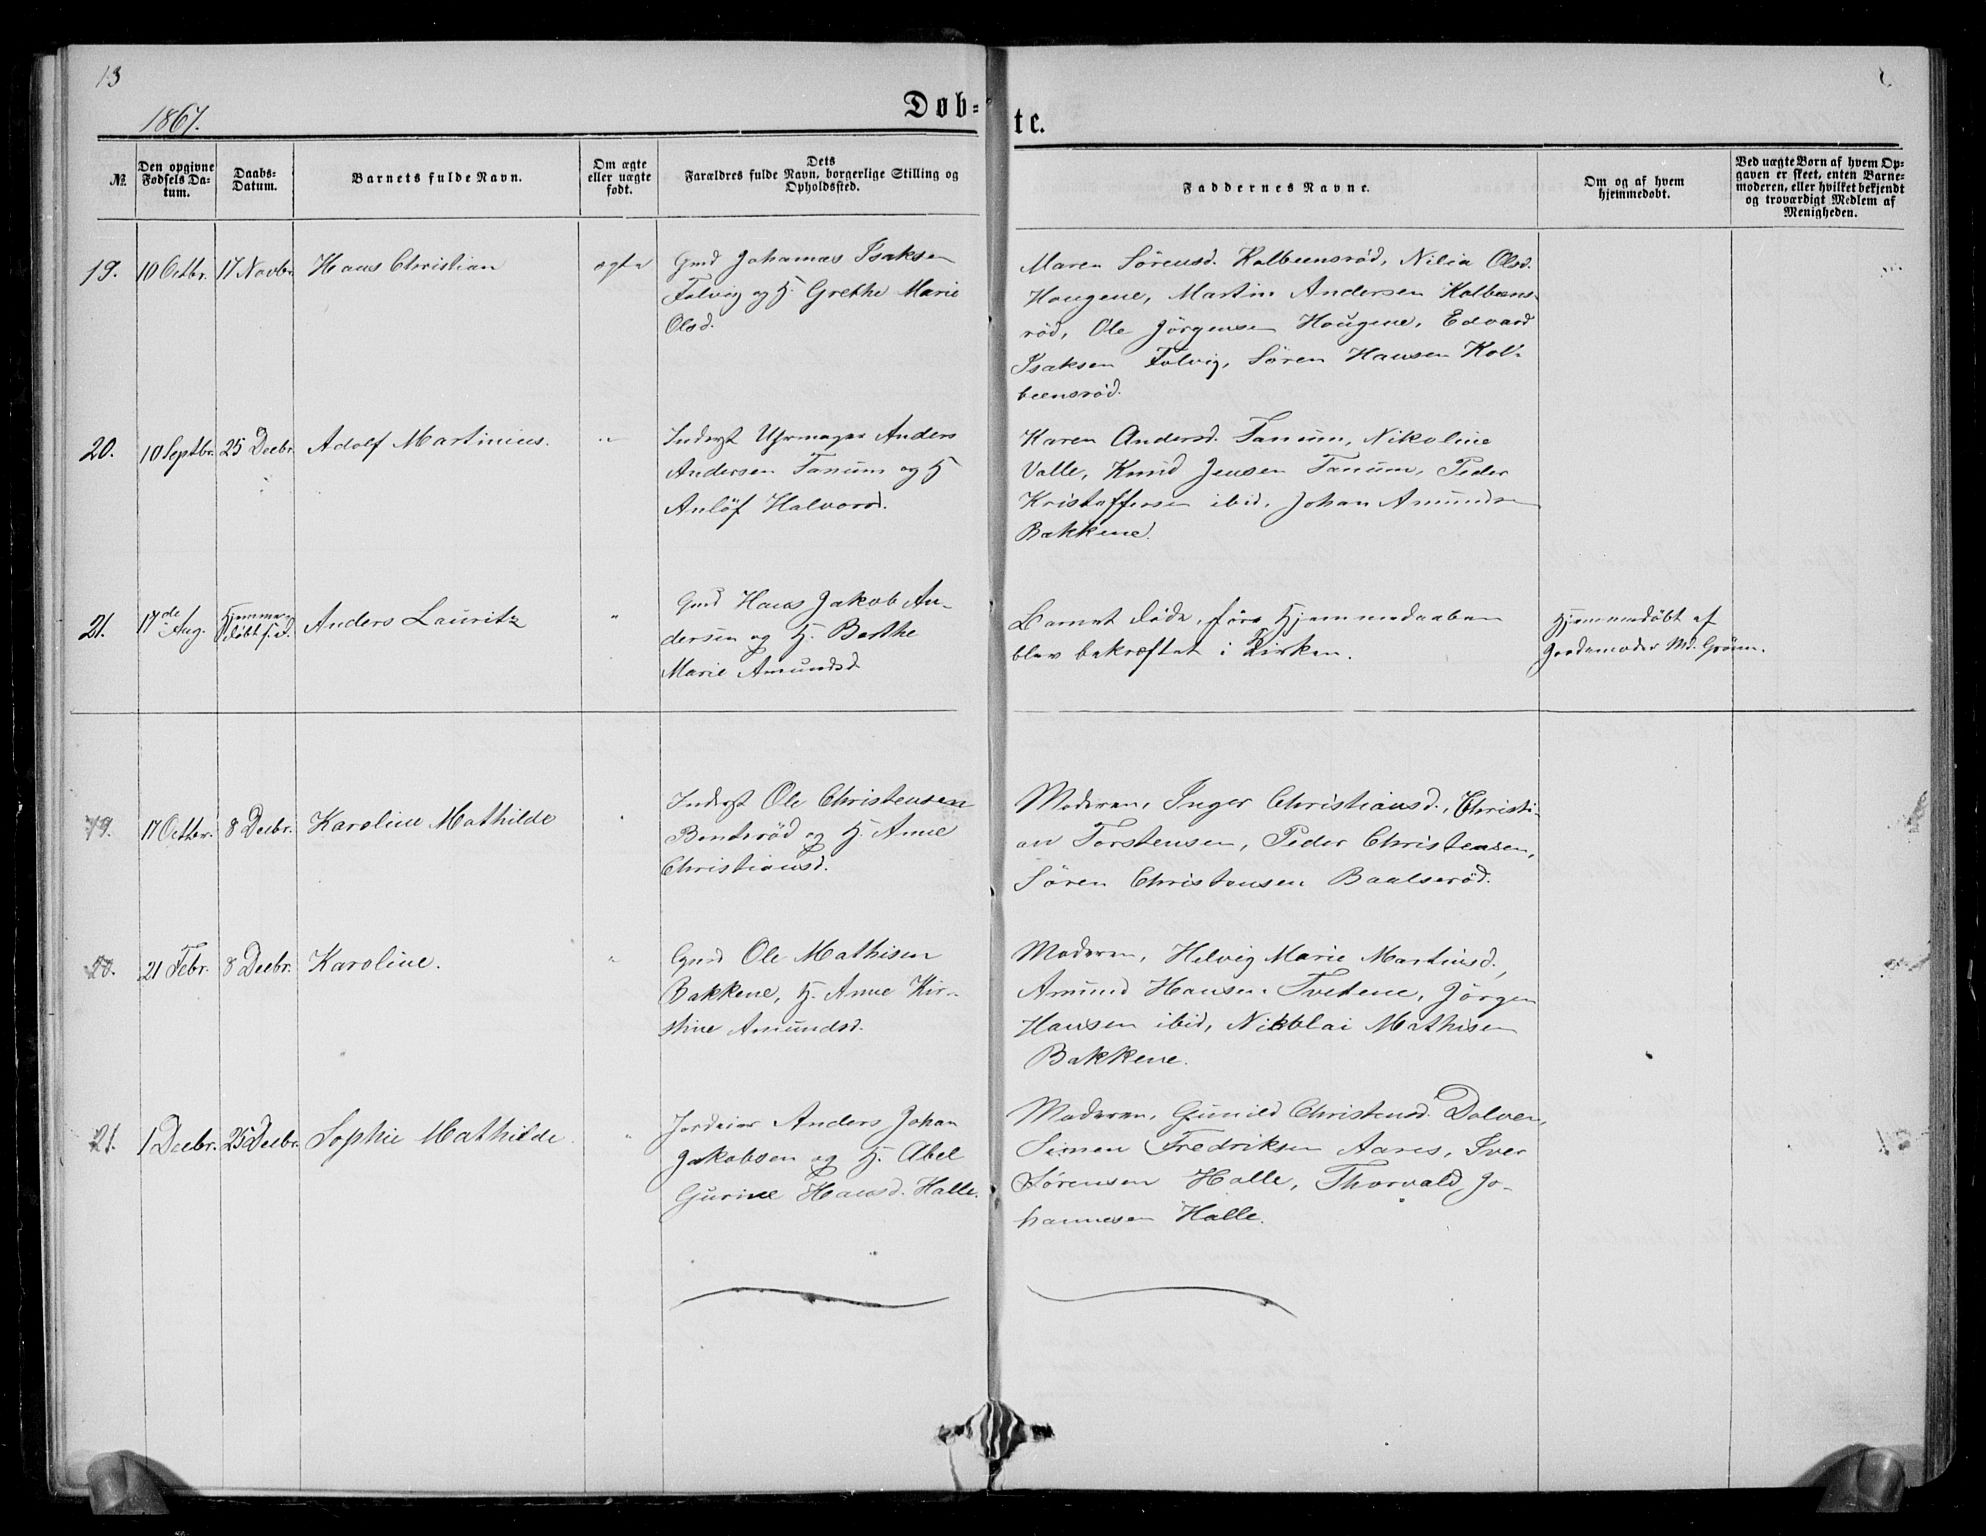 13
1867.
Døb-
te.
№
Den opgivne
Fødsels Da-
tum.
Daabs-
Datum.
Barnets fulde Navn.
Om ægte
eller uægte
født.
Dets
Forældres fulde Navn, borgerlige Stilling og
Opholdssted.
Faddernes Navne.
Om og af hvem
hjemmedøbt.
Ved uægte Børn af hvem Op-
gaven er skeet, enten Barne-
moderen, eller hvilket bekjendt
og troværdigt Medlem af
Menigheden.
19. 10 Octbr. 17 Novbr Hans Christian ægte
Gmd Johannes Isaksen
Folvig og H. Grethe Marie
Olsd.
Maren Sörensd. Kolbeensröd, Nilia Olsd.
Hougene, Martin Andersen Kolbeens-
röd, Ole Jörgensen Hougene, Edvard
Isaksen Folvig, Sören Hansen Kol-
beensröd.
20. 10 Septbr. 25 Decbr. Adolf Martinius. "
Inderst Uhrmager Anders
Andersen Tanum og H
Anlöf Halvorsd.
Karen Andersd. Tanum, Nikoline
Valle, Knud Jensen Tanum, Peder
Kristoffersen ibid, Johan Amundsen
Bakkene.
21. 17de Aug. Hjemme-
döbt s. d. Anders Lauritz "
Gmd Hans Jakob An-
dersen og H. Berthe
Marie Amundsd.
Barnet døde, före Hjemmedaaben
blev bekræftet i Kirken.
Hjemmedöbt af
Jordemoder Md. Grönn.
19. 17 Octbr. 8 Decbr. Karoline Mathilde "
Inderst Ole Christensen
Bentsröd og H. Anne
Christiansd.
Moderen, Inger Christiansd., Christi-
an Torstensen, Peder Christensen,
Sören Christensen Baalseröd.
20. 21 Febr. 8 Decbr. Karoline. "
Gmd Ole Mathisen
Bakkene, H. Anne Kir-
stine Amundsd.
Moderen, Helvig Marie Martinsd.,
Amund Hansen Tvetene, Jörgen
Hansen ibid, Nikolai Mathisen
Bakkene.
21. 1 Decbr. 25 Decbr. Sophie Mathilde "
Jordeier Anders Johan
Jakobsen og H. Abel
Gurine Hansd. Halle.
Moderen, Gunild Christensd. Dolven,
Simen Fredriksen Aares, Iver
Sörensen Halle, Thorvald Jo-
hannesen Halle.